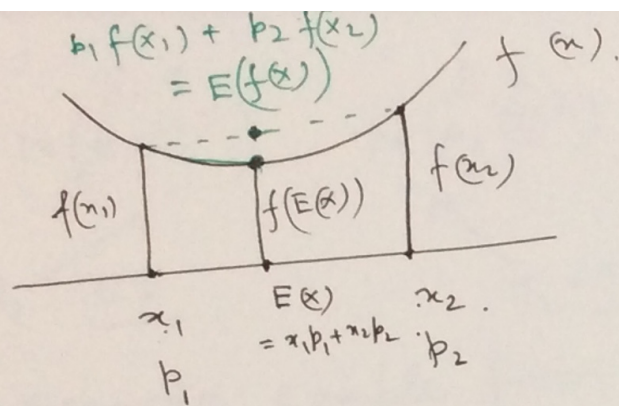 p₁ f(x₁) + p₂ f(x₂)
= E(f(x))
f(x).
f(x₁)
f(E(x))
f(x₂)
x₁
E(x)
= x₁p₁+x₂p₂
x₂.
p₁
p₂